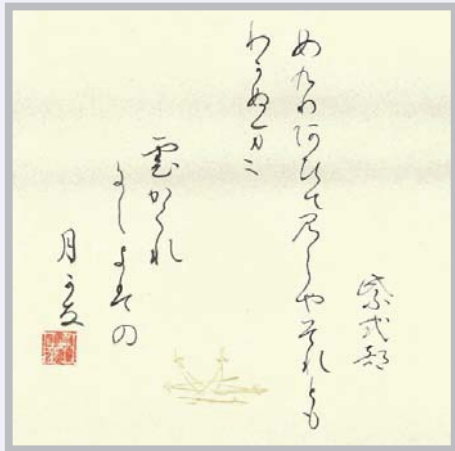 紫式部
めくりあひて見しやそれとも
わかぬまに
雲かくれ
にしよはの
月かな